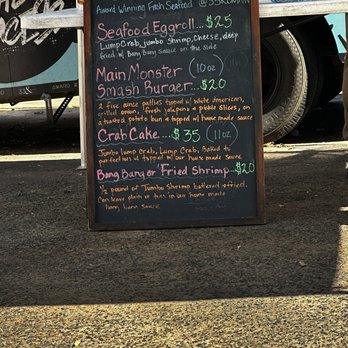 Award Winning Fresh Seafood @
Seafood Eggroll... $25
Lump Crab, jumbo shrimp, cheese, deep
fried w/ Bang Bang Sauce on the side
Main Monster (10oz)
Smash Burger....$20
2 five ounce patties topped w/ white American,
grilled onion, fresh jalapeño & pickle slices, on
a toasted potato bun & topped w/ house made sauce
Crab Cake.... $35 (11oz)
Jumbo lump Crab, Lump Crab, Baked to
perfection & topped w/ our house made sauce
Bang Bang or Fried Shrimp...$20
½ pound of Jumbo Shrimp battered & fried.
Can leave plain or toss in our house made
bang bang sauce